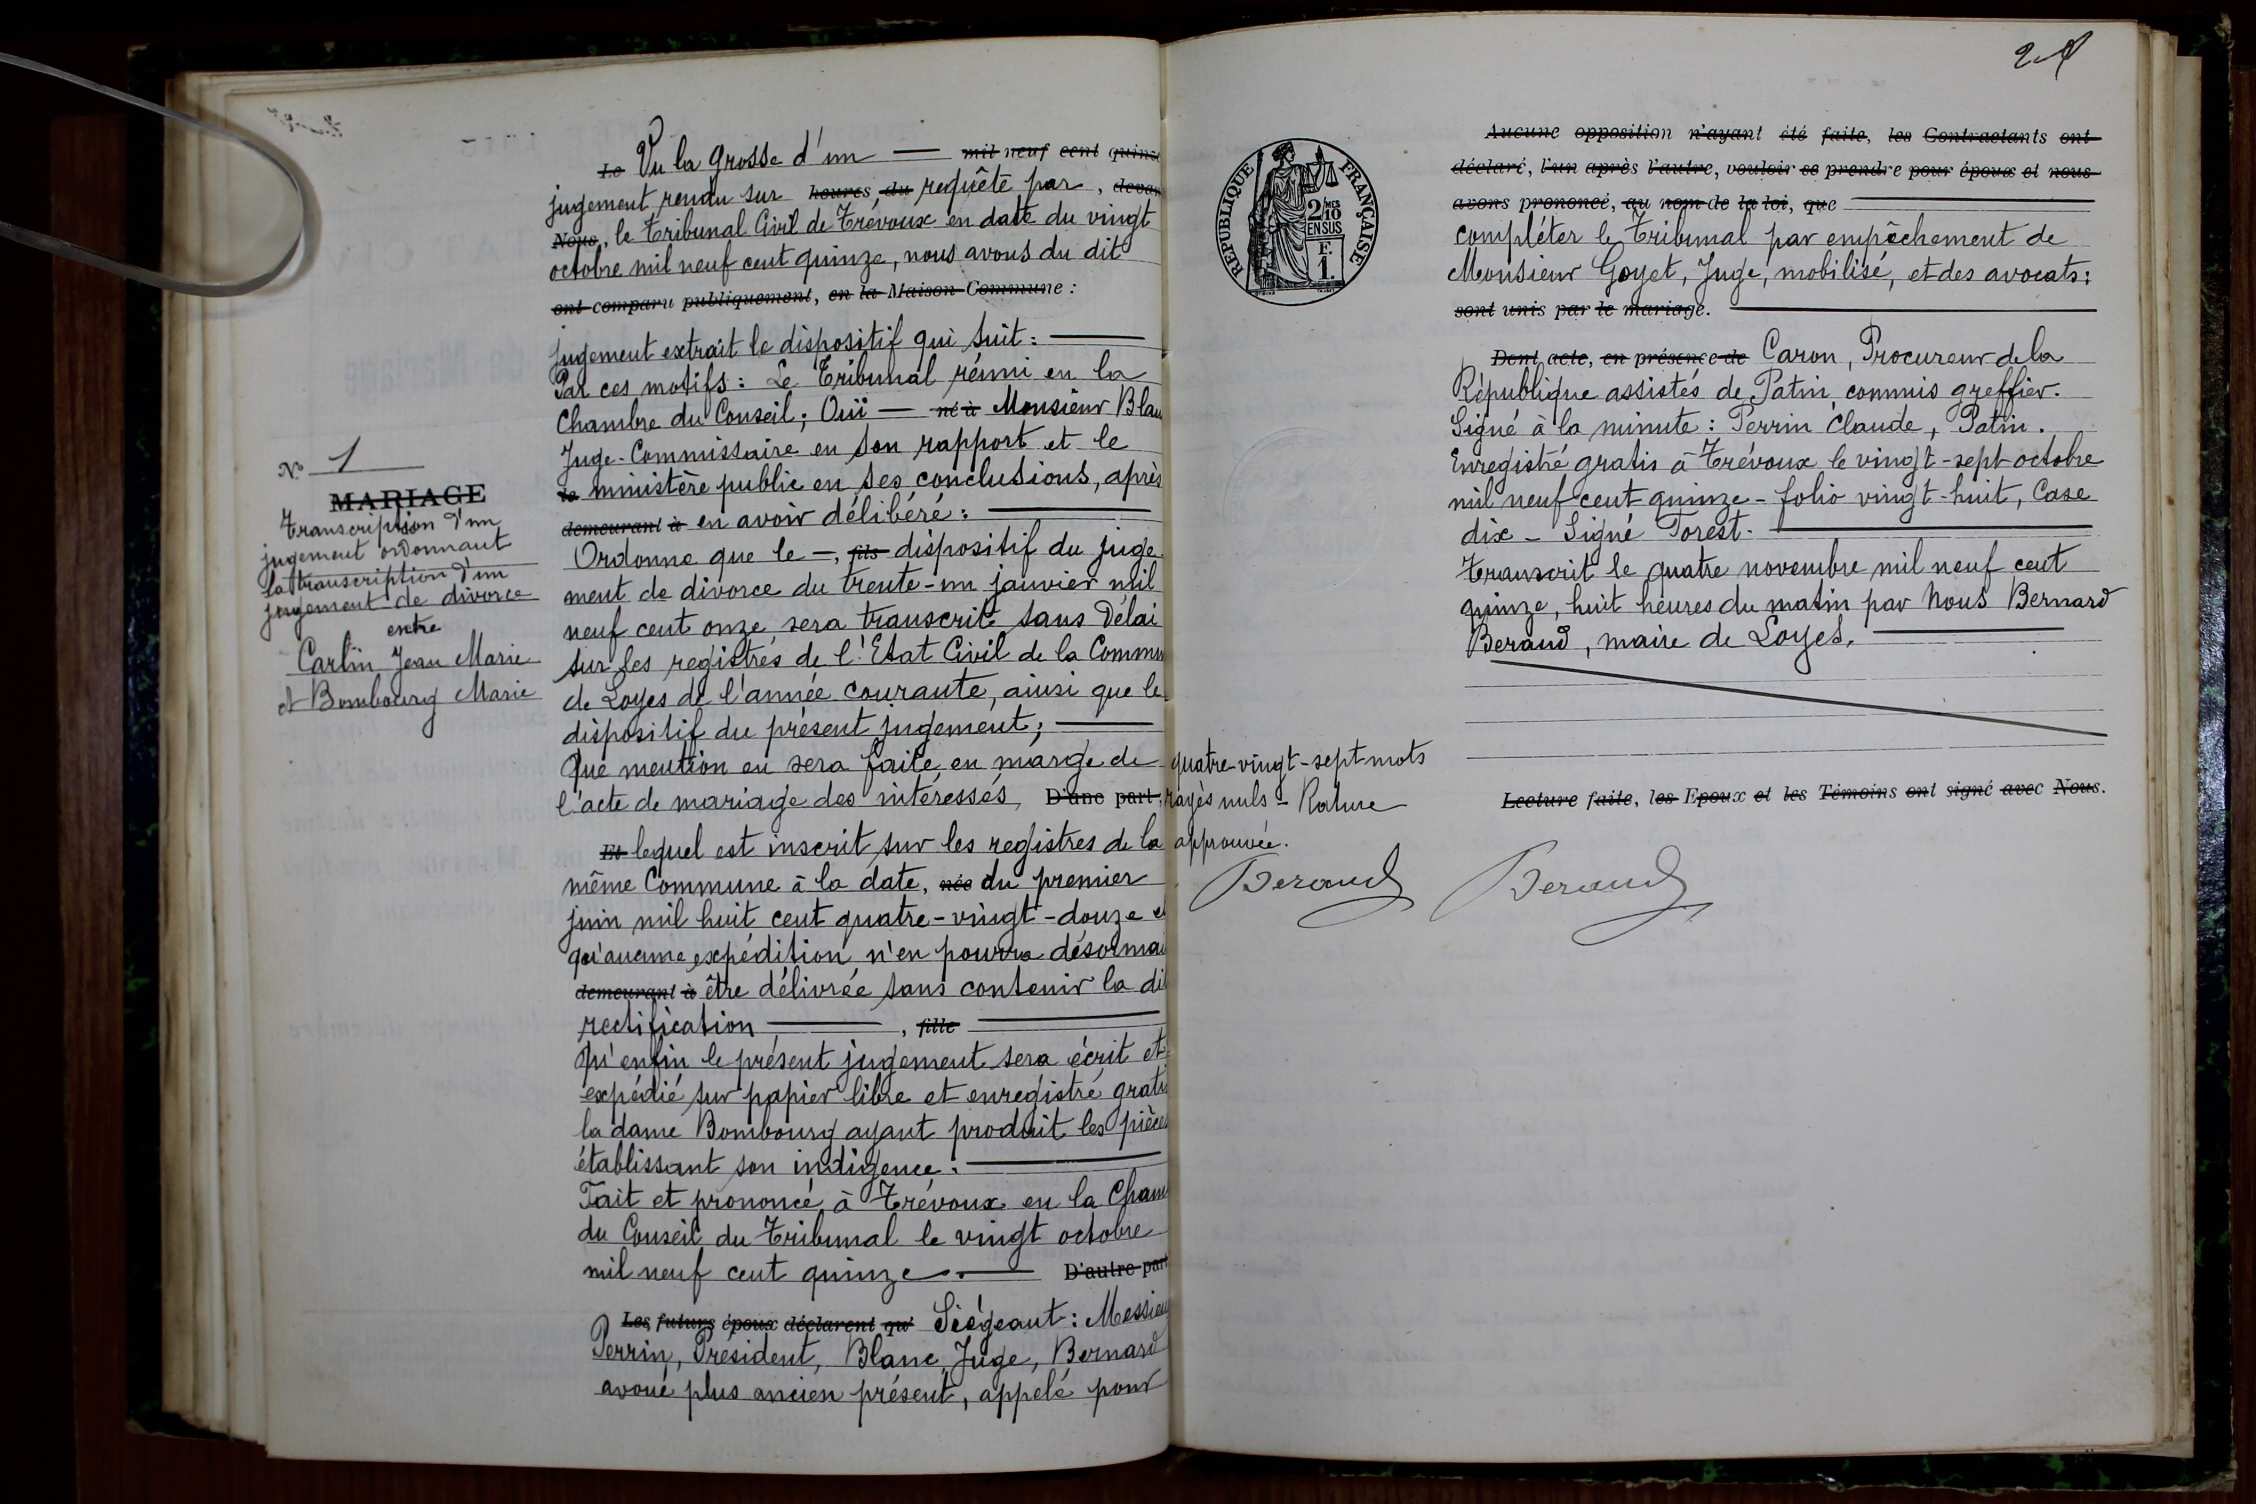 N° 1
MARIAGE
Transcription d'un
jugement ordonnant
la transcription d'un
jugement de divorce
entre
Carlin Jean Marie
et Bombourg Marie
Le Vu la grosse d'un — mil neuf cent quinze
jugement rendu sur heures du requête par, devant
Nous, le Tribunal Civil de Trévoux en date du vingt
octobre mil neuf cent quinze, nous avons du dit
ont comparu publiquement, en la Maison Commune :
jugement extrait le dispositif qui suit : —
Par ces motifs : Le Tribunal réuni en la
Chambre du Conseil ; Ouï — né à Monsieur Blanc
Juge-Commissaire en son rapport et le
le ministère public en ses conclusions, après
demeurant à en avoir délibéré : —
Ordonne que le —, fils dispositif du juge-
ment de divorce du trente-un janvier mil
neuf cent onze sera transcrit sans délai
sur les registres de l'Etat Civil de la Commune
de Loyes de l'année courante, ainsi que le
dispositif du présent jugement ; —
Que mention en sera faite en marge de
l'acte de mariage des intéressés, D'une part,
Et lequel est inscrit sur les registres de la
même Commune à la date, née du premier
juin mil huit cent quatre-vingt-douze et
qu'aucune expédition n'en pourra désormais
demeurant à être délivrée sans contenir la dit
rectification —, fille —
Qu'enfin le présent jugement sera écrit et
expédié sur papier libre et enregistré gratis
la dame Bombourg ayant produit les pièces
établissant son indigence. —
Fait et prononcé à Trévoux en la Cham
du Conseil du Tribunal le vingt octobre
mil neuf cent quinze. — D'autre part
Les futurs époux déclarent qu' Siégeant : Messieu
Perrin, Président, Blanc, Juge, Bernard
avoué plus ancien présent, appelé pour
quatre-vingt-sept mots
rayés nuls - Rature
approuvée.
Beraud
RÉPUBLIQUE FRANÇAISE
2/10MES
EN SUS
F.
1.
Aucune opposition n'ayant été faite, les Contractants ont
déclaré, l'un après l'autre, vouloir se prendre pour époux et nous
avons prononcé, au nom de la loi, que —
compléter le Tribunal par empêchement de
Monsieur Goyet, Juge, mobilisé, et des avocats :
sont unis par le mariage. —
Dont acte, en présence de Caron, Procureur de la
République assistés de Patin, commis greffier.
Signé à la minute : Perrin Claude, Patin.
Enregistré gratis à Trévoux le vingt-sept octobre
mil neuf cent quinze - folio vingt-huit, Case
dix - Signé Forest. —
Transcrit le quatre novembre mil neuf cent
quinze, huit heures du matin par Nous Bernard
Beraud, maire de Loyes. —
Lecture faite, les Epoux et les Témoins ont signé avec Nous.
Beraud